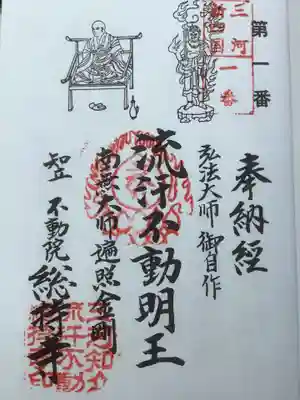 第一番
三河
新四国
一番
奉納経
弘法大師 御自作
流汗不動明王
南無大師遍照金剛
知立 不動院 総持寺